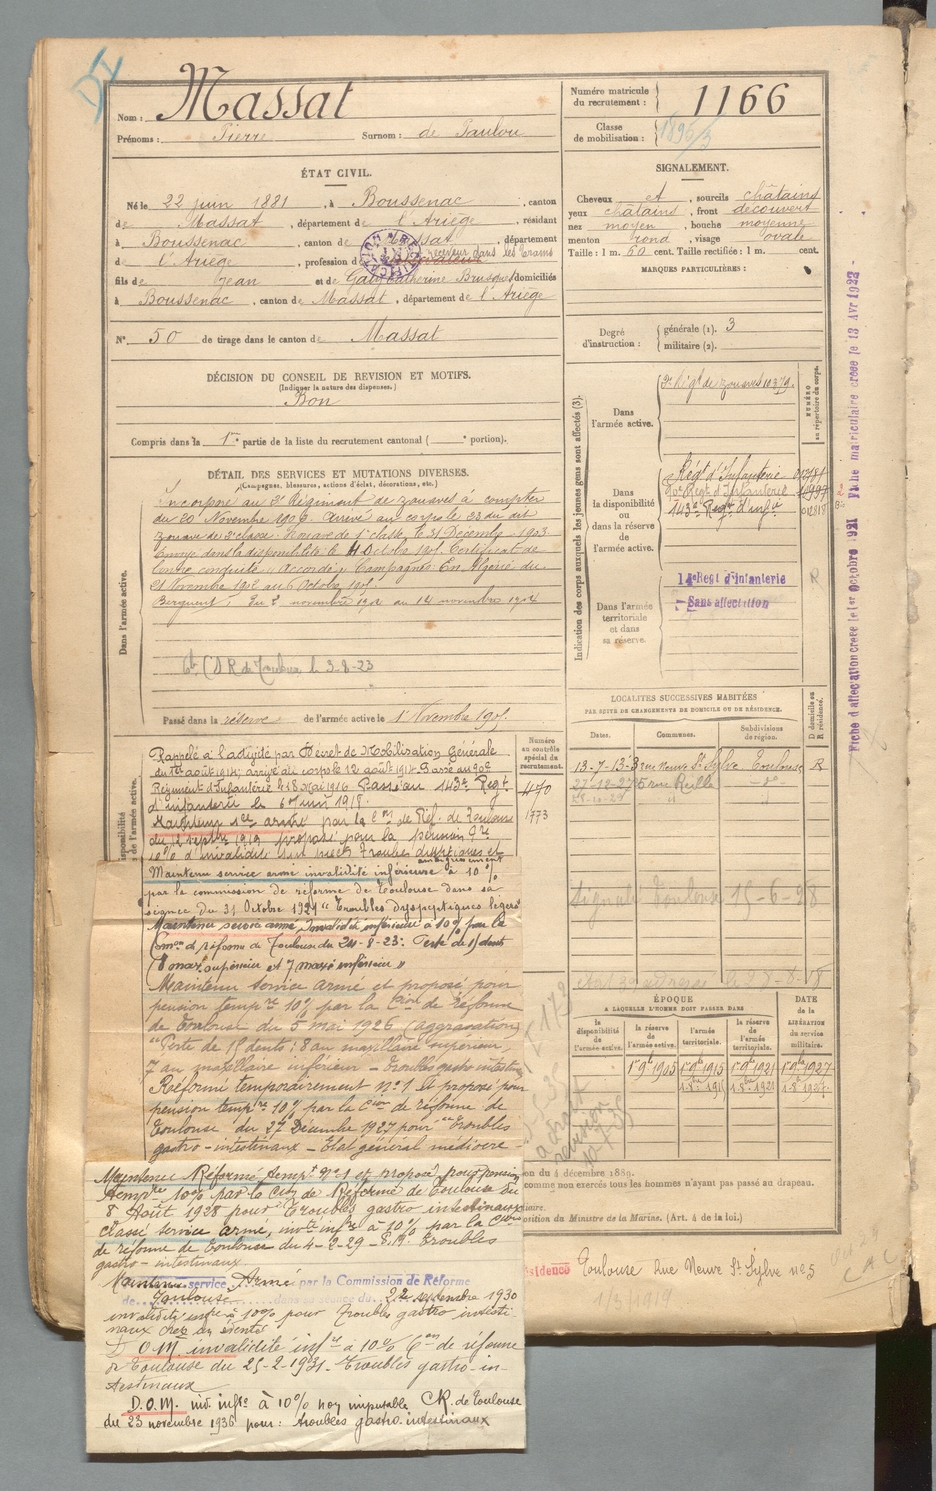 DI
Massat
Nom :
Prénoms : Pierre Surnom : de Paulou
Numéro matricule du recrutement : 1166
Classe de mobilisation : 1896/3
ÉTAT CIVIL.
Né le 22 juin 1881, à Boussenac, canton
de Massat, département de l'Ariège, résidant
à Boussenac, canton de Massat, département
de l'Ariège, profession de receveur dans les trams
fils de Jean et de Galy Catherine domiciliés
à Boussenac, canton de Massat, département de l'Ariège
N° 50 de tirage dans le canton de Massat
SIGNALEMENT.
Cheveux et, sourcils châtains
yeux châtains, front découvert
nez moyen, bouche moyenne
menton rond, visage ovale
Taille : 1 m. 60 cent. Taille rectifiée : 1 m. cent.
MARQUES PARTICULIÈRES :
Degré d'instruction : générale (1). 3
militaire (2).
DÉCISION DU CONSEIL DE REVISION ET MOTIFS.
(Indiquer la nature des dispenses.)
Bon
Compris dans la 1re partie de la liste du recrutement cantonal ( e portion).
DÉTAIL DES SERVICES ET MUTATIONS DIVERSES.
(Campagnes, blessures, actions d'éclat, décorations, etc.)
Dans l'armée active.
Incorporé au 2e Régiment de zouaves à compter
du 20 Novembre 1902 arrivé au corps le 23 du dit
zouave de 2e classe. Zouave de 1e classe le 31 Décembre 1903
envoyé dans la disponibilité le Octobre 1905. Certificat de
bonne conduite "Accordé". Campagne: En Algérie du
21 Novembre 1902 au 6 Octobre 1905
Berguent, Du 2 novembre 1904 au 14 novembre 1904
C.D.R. de Toulouse le 3-8-23
Passé dans la réserve de l'armée active le 1er Novembre 1905.
Indication des corps auxquels les jeunes gens sont affectés (3).
NUMÉRO au répertoire du corps.
Dans l'armée active.
2e Régt de zouaves 10379.
Dans la disponibilité ou dans la réserve de l'armée active.
Régt d'Infanterie
90e Régt d'Infanterie
143e Régt d'infie 012818
Dans l'armée territoriale et dans sa réserve.
14e Régt d'infanterie
Sans affectation
R
Fiche d'affectation créée le 1er Octobre 1921 Fiche matriculaire créée le 13 Avr 1922
LOCALITÉS SUCCESSIVES HABITÉES
PAR SUITE DE CHANGEMENTS DE DOMICILE OU DE RÉSIDENCE.
Dates. Communes. Subdivisions de région. D domicile ou R résidence.
13-7-13 3 rue Neuve St Sylve Toulouse R
27-12-27 5 rue Reille - do -
Signalé Toulouse 15-6-28
Numéro au contrôle spécial du recrutement.
470
1773
Rappelé à l'activité par Décret de Mobilisation Générale
du 1er août 1914; arrivé au corps le 12 août 1914. Passé au 90e
Régiment d'Infanterie le 18 mai 1916. Passé au 143e Régt
d'infanterie le 6 juin 1918.
Maintenu sce armé par la Con de Réf. de Toulouse
du 12 septbre 1919 proposé pour la pension
10% d'invalidité
Maintenu service armé invalidité inférieure à 10%
par la commission de réforme de Toulouse dans sa
séance du 31 Octobre 1921 "Troubles dyspeptiques légers"
Maintenu service armé, invalidité inférieure à 10% par la
Comon de réforme de Toulouse du 24-8-23: Perte de 15 dents
(8 max. supérieur et 7 maxre inférieur)"
Maintenu service armé et proposé pour
pension tempre 10% par la Cion de réforme
de Toulouse du 5 mai 1926 (aggravation)
"Perte de 15 dents : 8 au maxillaire supérieur,
7 au maxillaire inférieur - troubles gastro intestin
Réformé temporairement n°1 et proposé pour
pension tempre 10% par la Cion de réforme de
Toulouse du 27 Décembre 1927 pour "Troubles
gastro-intestinaux - Etat général médiocre -
Maintenu Réformé tempt n°1 et proposé pour pension
tempre 10% par la Con de Réforme de Toulouse du
8 Août 1928 pour "Troubles gastro intestinaux
Classé service armé, invté infre à 10% par la Cion
de réforme de Toulouse du 4-2-29 - Troubles
gastro-intestinaux.
Maintenu service Armé par la Commission de Réforme
de Toulouse dans sa séance du 22 septembre 1930
invalidité infre à 10% pour Troubles gastro intesti-
naux
D.O.M. invalidité infre à 10% Con de réforme
de Toulouse du 25-2-1931. Troubles gastro-in-
testinaux
D.O.M. inv. infre à 10% non imputable CR. de Toulouse
du 23 novembre 1936 pour : troubles gastro. intestinaux
ÉPOQUE
A LAQUELLE L'HOMME DOIT PASSER DANS
la disponibilité de l'armée active. la réserve de l'armée active. l'armée territoriale. la réserve de l'armée territoriale. DATE de la LIBÉRATION du service militaire.
1er 9bre 1905 1er 9bre 1915 1er 9bre 1921 1er 9bre 1927
on du 4 décembre 1889.
comme non exercés tous les hommes n'ayant pas passé au drapeau.
osition du Ministre de la Marine. (Art. 4 de la loi.)
Résidence Toulouse Rue Neuve St Sylve n°5
1/3/1919